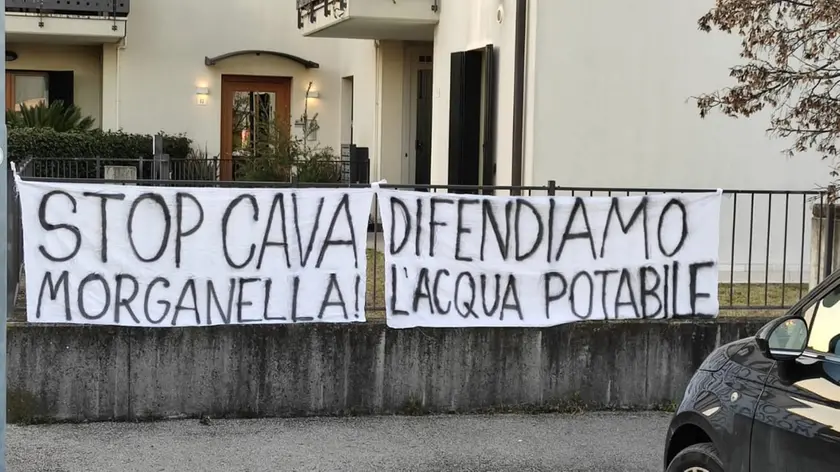 STOP CAVA
MORGANELLA!
DIFENDIAMO
L'ACQUA POTABILE